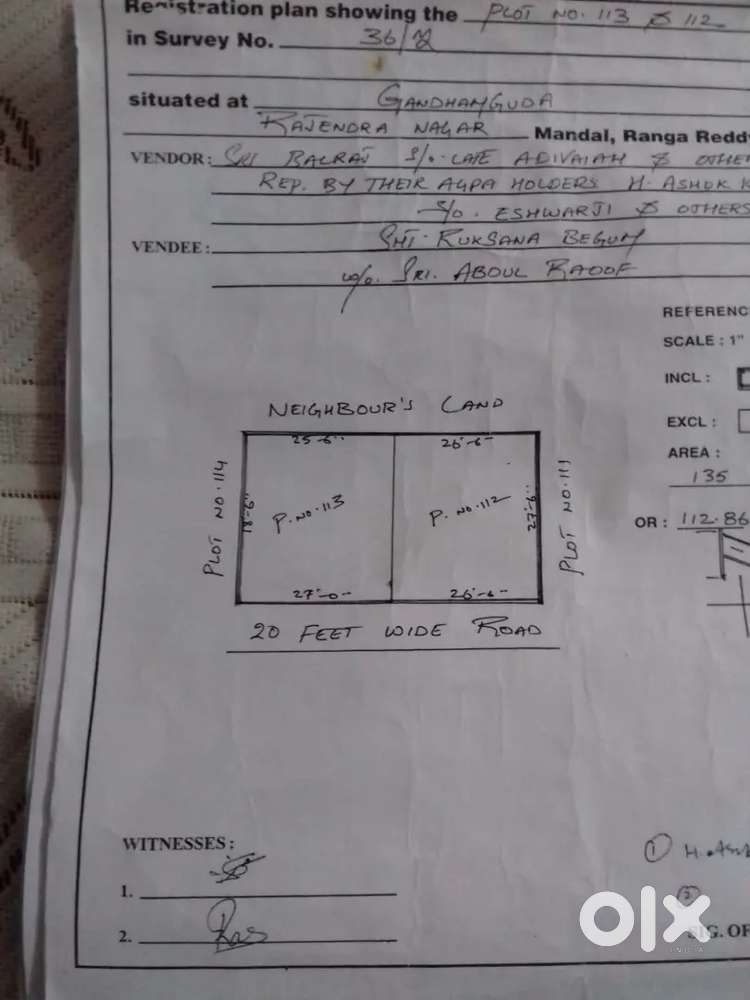 Registration plan showing the PLOT NO. 113 & 112
in Survey No. 36/
situated at GANDHAMGUDA
RAJENDRA NAGAR Mandal, Ranga Reddy
VENDOR: SRI BALRAJ S/o. LATE ADIVAIAH & OTHER
REP. BY THEIR AGPA HOLDERS H. ASHOK K
S/O. ESHWARJI & OTHERS
VENDEE: SMT. RUKSANA BEGUM
W/o. SRI. ABDUL RAOOF
REFERENC
SCALE : 1"
INCL :
EXCL :
AREA :
135
OR : 112.86
NEIGHBOUR'S LAND
25'-6"
26'-6"
PLOT NO. 114
18'-6"
P. NO. 113
P. NO. 112
27'-6"
PLOT NO. 111
27'-0"
26'-6"
20 FEET WIDE ROAD
WITNESSES :
1.
2.
① H. Ash
②
SIG. OF
olx
INDIA